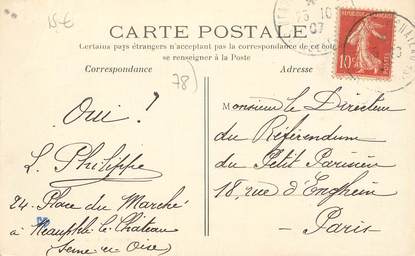 15€
CARTE POSTALE
Certains pays étrangers n'acceptant pas la correspondance de ce côté
se renseigner à la Poste
Correspondance
Adresse
78)
RÉPUBLIQUE FRANÇAISE
10c
POSTES
25 10
07
Oui !
L. Philippe
24 Place du Marché
à Neauphle-le-Château
(Seine-et-Oise)
Monsieur le Directeur
du Référendum
du Petit Parisien
18, rue d'Enghein
- Paris -